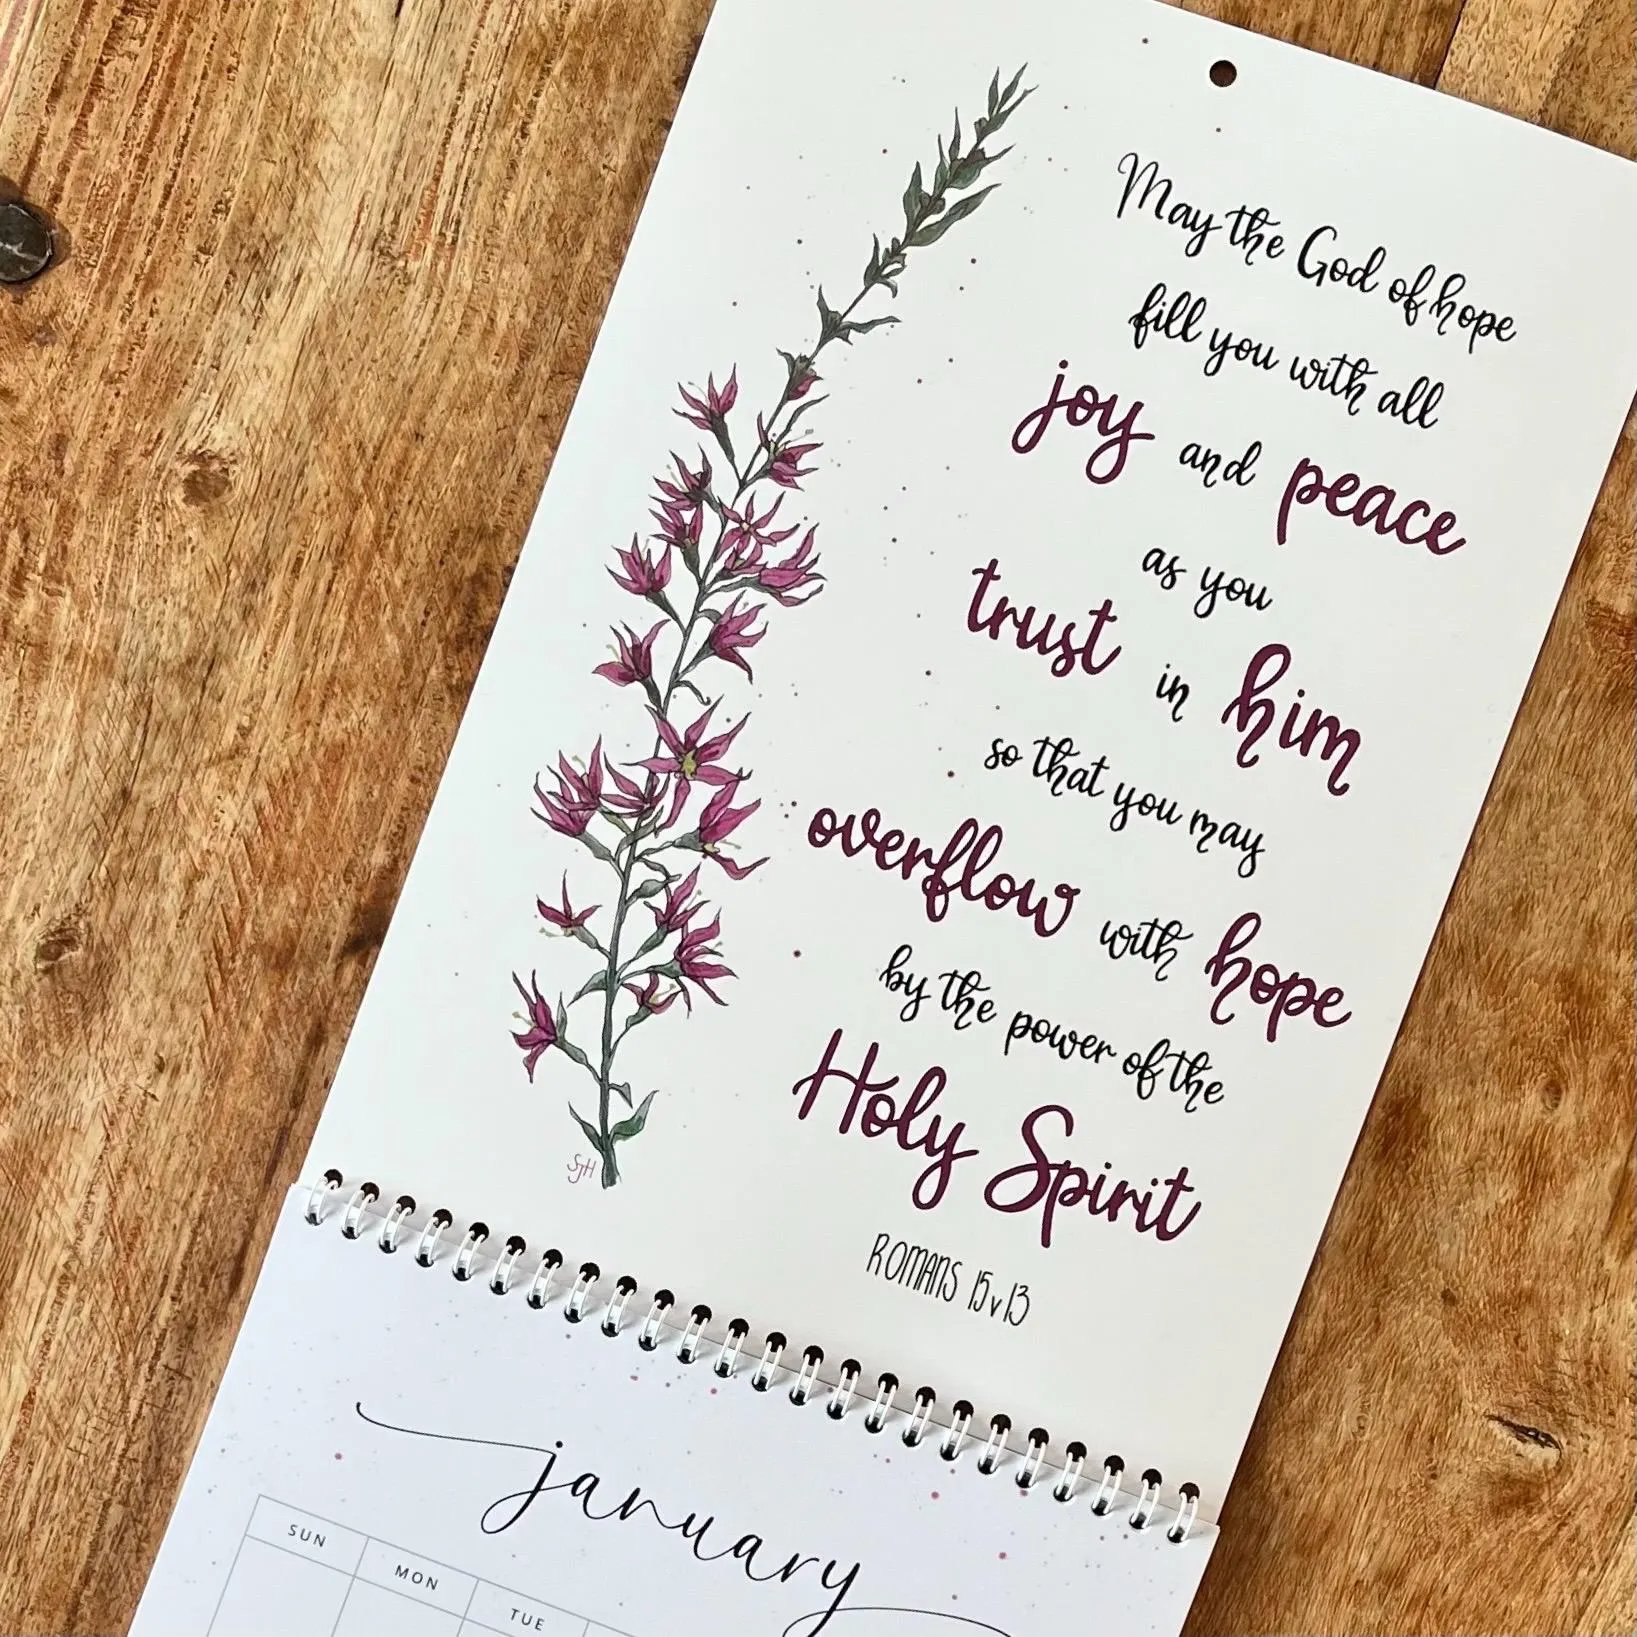 May the God of hope
fill you with all
joy and peace
as you
trust in him
so that you may
overflow with hope
by the power of the
Holy Spirit
ROMANS 15 v 13
SJH
january
SUN MON TUE